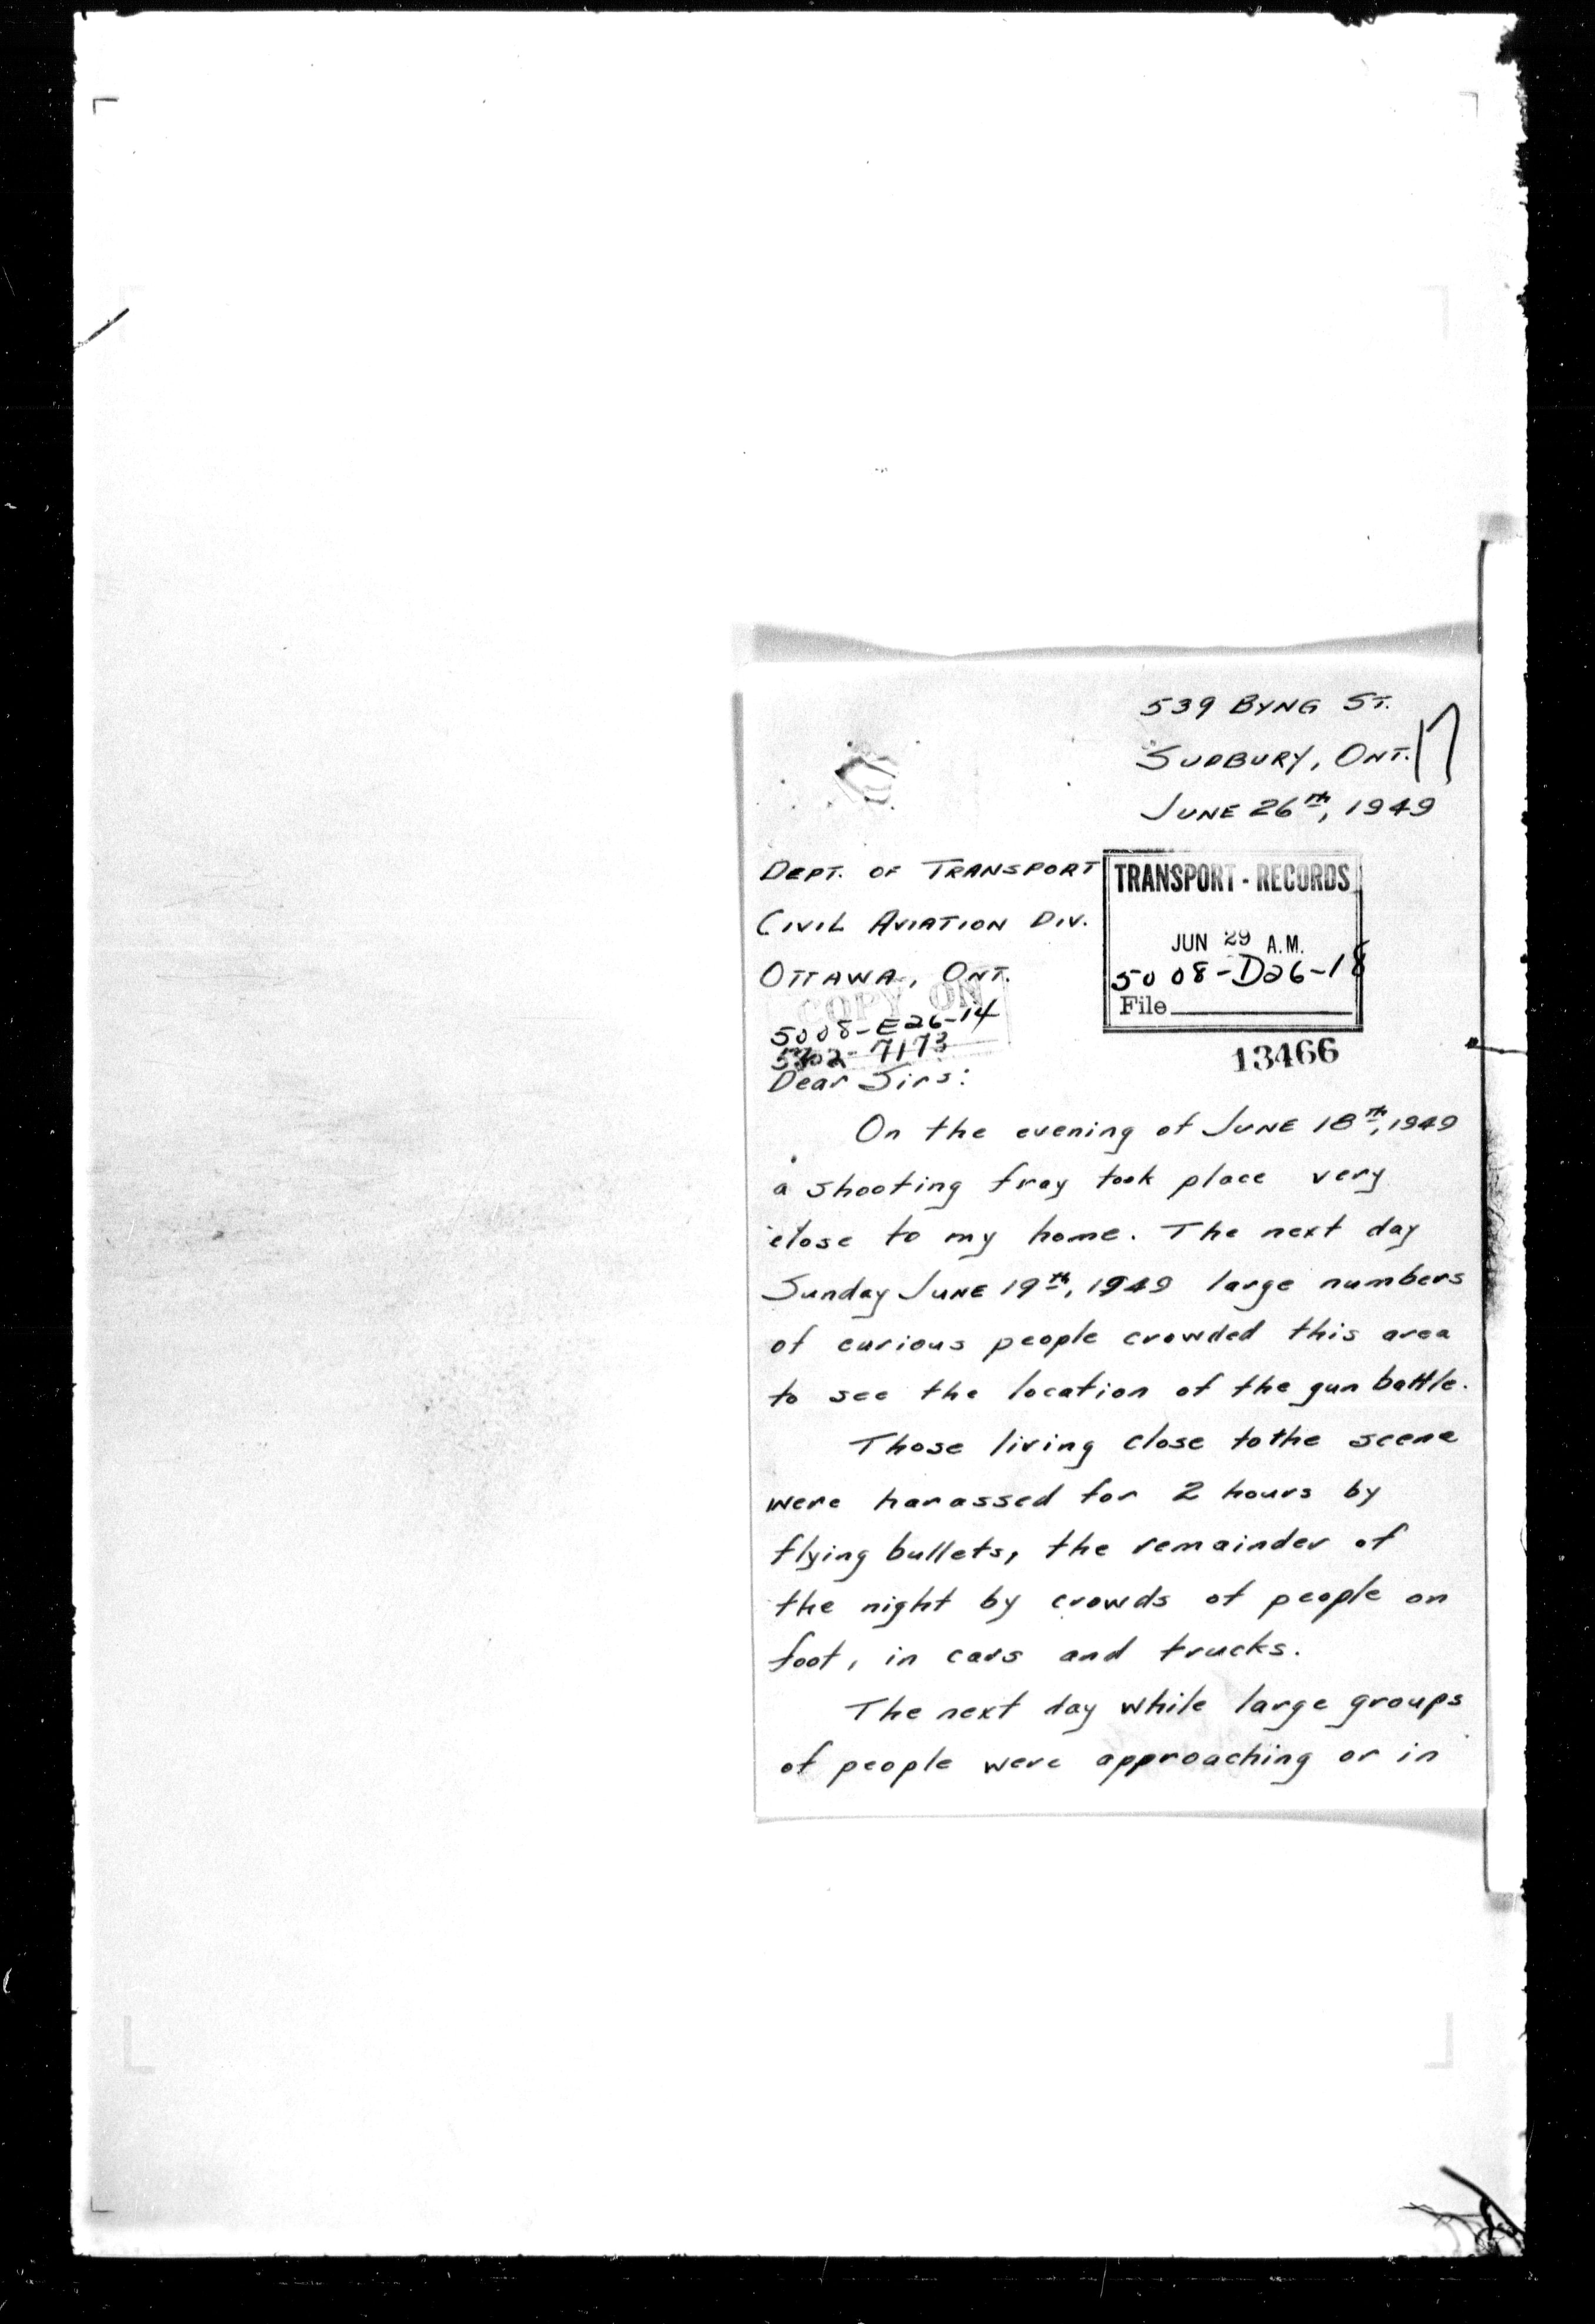 539 BYNG ST.
SUDBURY, ONT. 17
JUNE 26th, 1949
DEPT. OF TRANSPORT
CIVIL AVIATION DIV.
OTTAWA, ONT.
TRANSPORT - RECORDS
JUN 29 A.M.
5008-D26-18
File
13466
COPY ON
5008-E26-14
7173
Dear Sirs:
On the evening of JUNE 18th, 1949
a shooting fray took place very
close to my home. The next day
Sunday JUNE 19th, 1949 large numbers
of curious people crowded this area
to see the location of the gun battle.
Those living close to the scene
were harassed for 2 hours by
flying bullets, the remainder of
the night by crowds of people on
foot, in cars and trucks.
The next day while large groups
of people were approaching or in